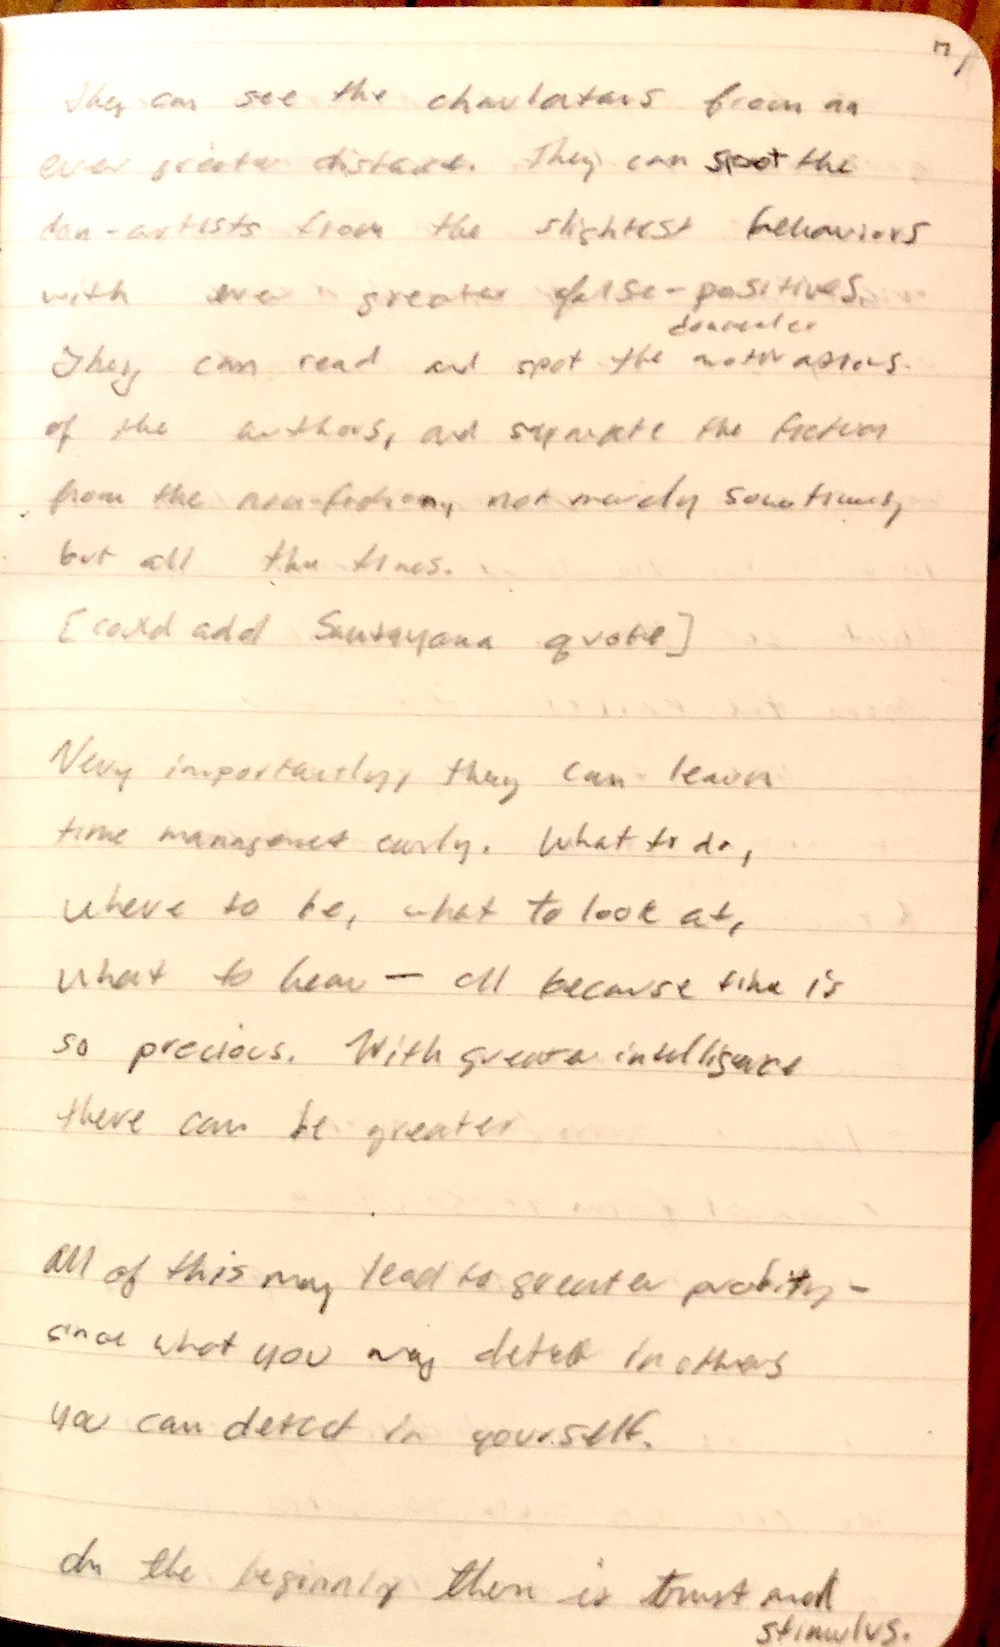 They can see the charlatans from an
ever greater distance. They can spot the
con-artists from the slightest behaviors
with ever greater false-positives.
They can read and spot the motivations
of the authors, and separate the fiction
from the non-fiction, not merely sometimes,
but all the times.
[could add Santayana quote]
Very importantly, they can learn
time management early. What to do,
where to be, what to look at,
what to hear — all because time is
so precious. With greater intelligence
there can be greater
All of this may lead to greater probity –
since what you may detect in others
you can detect in yourself.
In the beginning there is trust and
stimulus.